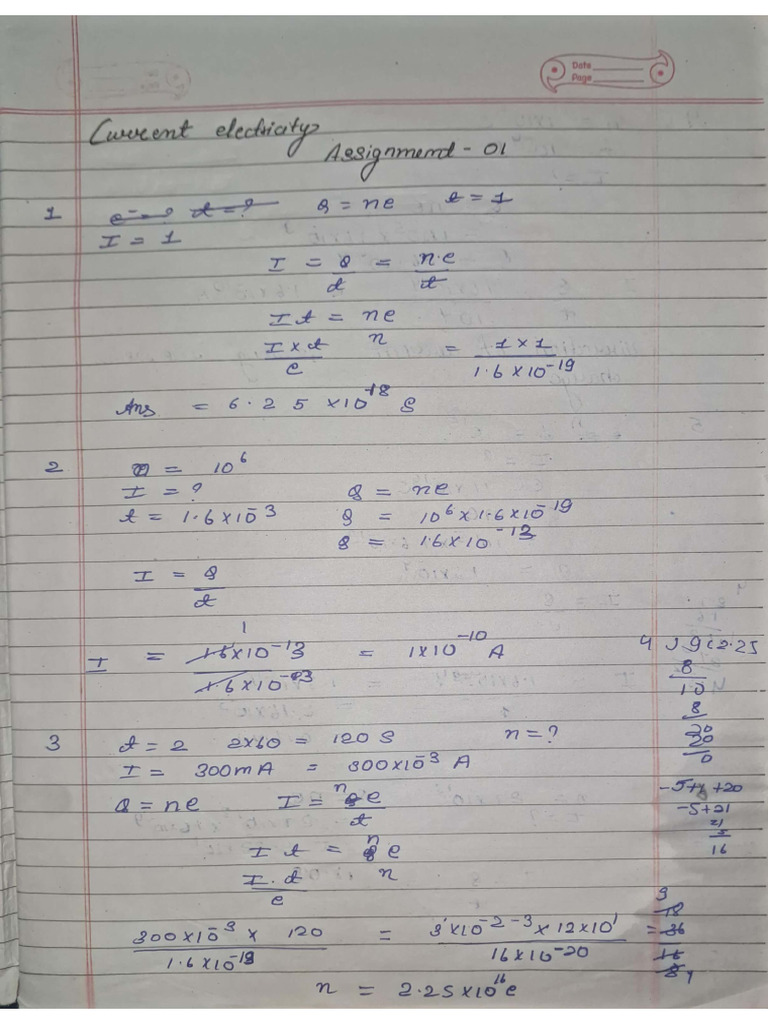 Date
Page
Current electricity
Assignment - 01
1 e⁻ = ? t = ? Q = ne t = 1
I = 1
I = Q/t = n.e/t
It = ne
I×t/e n = 1×1/1.6×10⁻¹⁹
Ans = 6.25 ×10⁻¹⁸ S
2 n = 10⁶
I = ? Q = ne
t = 1.6×10⁻³ Q = 10⁶×1.6×10⁻¹⁹
Q = 1.6×10⁻¹³
I = Q/t
1
I = 1.6×10⁻¹³/1.6×10⁻³ = 1×10⁻¹⁰ A
4 ) 9 ( 2.25
8
10
8
20
20
0
3 t = 2 2×60 = 120 S n = ?
I = 300mA = 300×10⁻³ A
Q = ne I = ne/t
-5+1+20
-5+21
21
5
16
It = ne
I.t/e n
300×10⁻³ × 120/1.6×10⁻¹⁹ = 3×10⁻²⁻³×12×10¹/16×10⁻²⁰ = 36
9
18
16
8 4
n = 2.25×10¹⁶ e